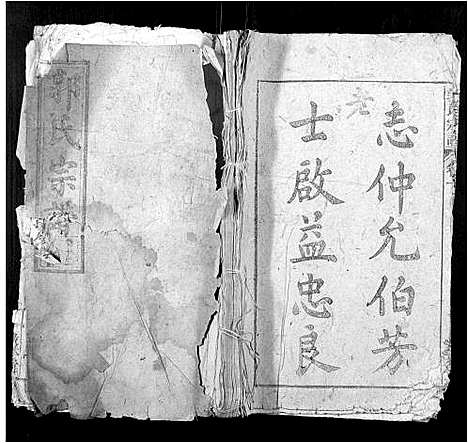 志仲允伯芳
士啟益忠良
老
氏宗譜